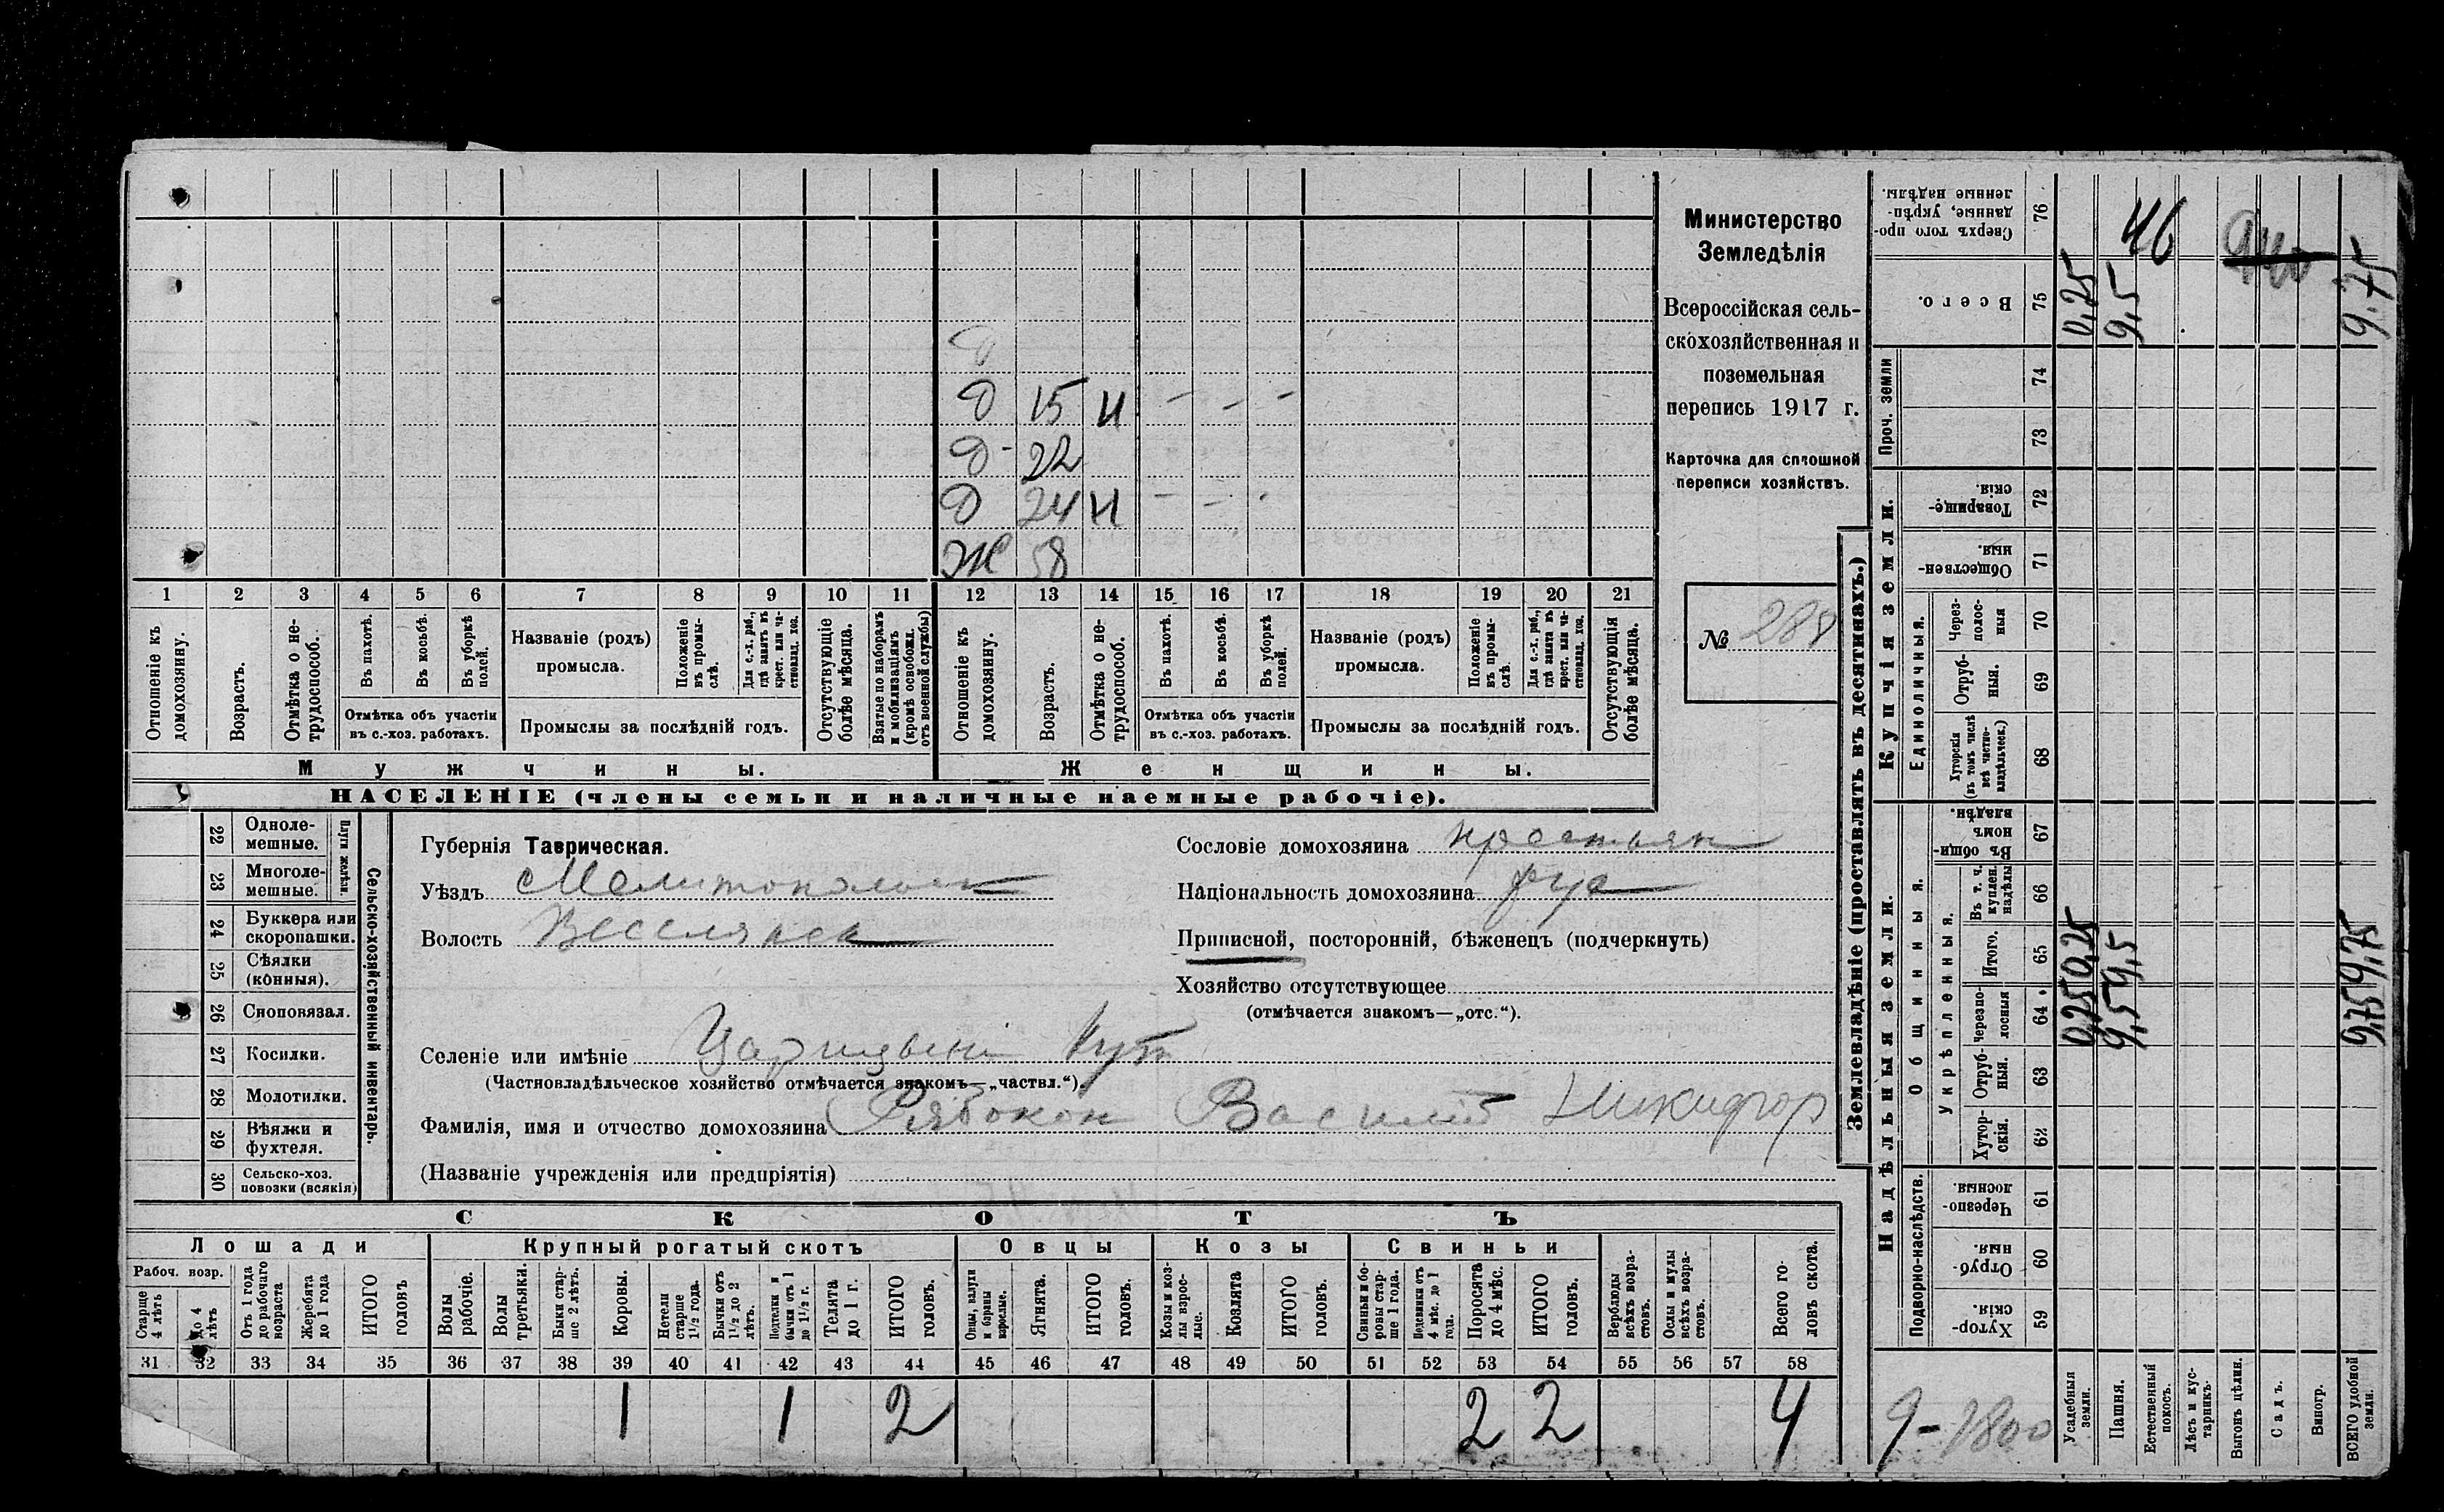 Министерство
Земледѣлія
Всероссійская сель-
скохозяйственная и
поземельная
перепись 1917 г.
Карточка для сплошной
переписи хозяйствъ.
№ 288
Д
Д 15 н - - -
Д - 22
Д 24 н - - -
Ж 58
1 2 3 4 5 6 7 8 9 10 11 12 13 14 15 16 17 18 19 20 21
Отношеніе къ домохозяину.
Возрастъ.
Отмѣтка о не-трудоспособ.
Въ пахотѣ.
Въ косьбѣ.
Въ уборкѣ полей.
Отмѣтка объ участіи
въ с.-хоз. работахъ.
Названіе (родъ)
промысла.
Положеніе въ промы-слѣ.
Для с.-х. раб., гдѣ занятъ въ крест. или ча-стновлад. хоз.
Промыслы за послѣдній годъ.
Отсутствующіе болѣе мѣсяца.
Взятые по наборамъ и мобилизаціямъ (кромѣ освобожд. отъ военной службы)
Отношеніе къ домохозяину.
Возрастъ.
Отмѣтка о не-трудоспособ.
Въ пахотѣ.
Въ косьбѣ.
Въ уборкѣ полей.
Отмѣтка объ участіи
въ с.-хоз. работахъ.
Названіе (родъ)
промысла.
Положеніе въ промы-слѣ.
Для с.-х. раб., гдѣ занята въ крест. или ча-стновлад. хоз.
Промыслы за послѣдній годъ.
Отсутствующія болѣе мѣсяца.
Мужчины.
Женщины.
НАСЕЛЕНІЕ (члены семьи и наличные наемные рабочіе).
22 Одноле-мешные.
23 Многоле-мешные.
Плуги желѣзн.
24 Буккера или скоропашки.
25 Сѣялки (конныя).
26 Сноповязал.
27 Косилки.
28 Молотилки.
29 Вѣялки и фухтеля.
30 Сельско-хоз. повозки (всякія)
Сельско-хозяйственный инвентарь.
Губернія Таврическая.
Уѣздъ Мелитопольск
Волость Веселянск
Селеніе или имѣніе Царицынъ Кутъ
(Частновладѣльческое хозяйство отмѣчается знакомъ—„частвл.“).
Фамилія, имя и отчество домохозяина Рябокон Василій Никифор
(Названіе учрежденія или предпріятія)
Сословіе домохозяина крестьян
Національность домохозяина рус
Приписной, посторонній, бѣженецъ (подчеркнуть)
Хозяйство отсутствующее
(отмѣчается знакомъ—„отс.“).
СКОТЪ
Лошади
Крупный рогатый скотъ
Овцы
Козы
Свиньи
Рабоч. возр.
Старше 4 лѣтъ
до 4 лѣтъ
Отъ 1 года до рабочаго возраста
Жеребята до 1 года
ИТОГО головъ
Волы рабочіе.
Волы третьяки.
Быки стар-ше 2 лѣтъ.
Коровы.
Нетели старше 1½ года.
Бычки отъ 1½ до 2 лѣтъ.
Подтелки и бычки отъ 1 до 1½ г.
Телята до 1 г.
ИТОГО головъ.
Овцы, валухи и бараны взрослые.
Ягнята.
ИТОГО головъ.
Козы и коз-лы взрос-лые.
Козлята
ИТОГО головъ.
Свиньи и бо-ровы стар-ше 1 года.
Подсвинки отъ 4 мѣс. до 1 года.
Поросята до 4 мѣс.
ИТОГО головъ.
Верблюды всѣхъ возра-стовъ.
Ослы и мулы всѣхъ возра-стовъ.
Всего го-ловъ скота.
31 32 33 34 35 36 37 38 39 40 41 42 43 44 45 46 47 48 49 50 51 52 53 54 55 56 57 58
1 1 2 2 2 4
Землевладѣніе (проставлять въ десятинахъ.)
Надѣльныя земли.
Купчія земли.
Проч. земли
Подворно-наслѣдств.
Общинныя.
Укрѣпленныя.
Единоличныя.
Сверхъ того про-данные, укрѣп-ленные надѣлы. 76
Всего. 75
74
73
Товарище-скія. 72
Обществен-ныя. 71
Через-полос-ныя 70
Отруб-ныя. 69
Хуторскія (въ томъ числѣ всѣ частно-владѣльческ.) 68
Въ общин-номъ владѣн. 67
Въ т. ч. куплен. надѣлы 66
Итого. 65
Черезпо-лосныя 64
Отруб-ныя. 63
Хутор-скія. 62
Черезпо-лосныя. 61
Отруб-ныя. 60
Хутор-скія. 59
Усадебныя земли.
Пашня.
Естественный покосъ.
Лѣсъ и кус-тарникъ.
Выгонъ цѣлин.
Садъ.
Виногр.
ВСЕГО удобной земли.
0,25 0,25 0,25
9,5 9,5 9,5
46
9,75 9,75 9.75
9-1800